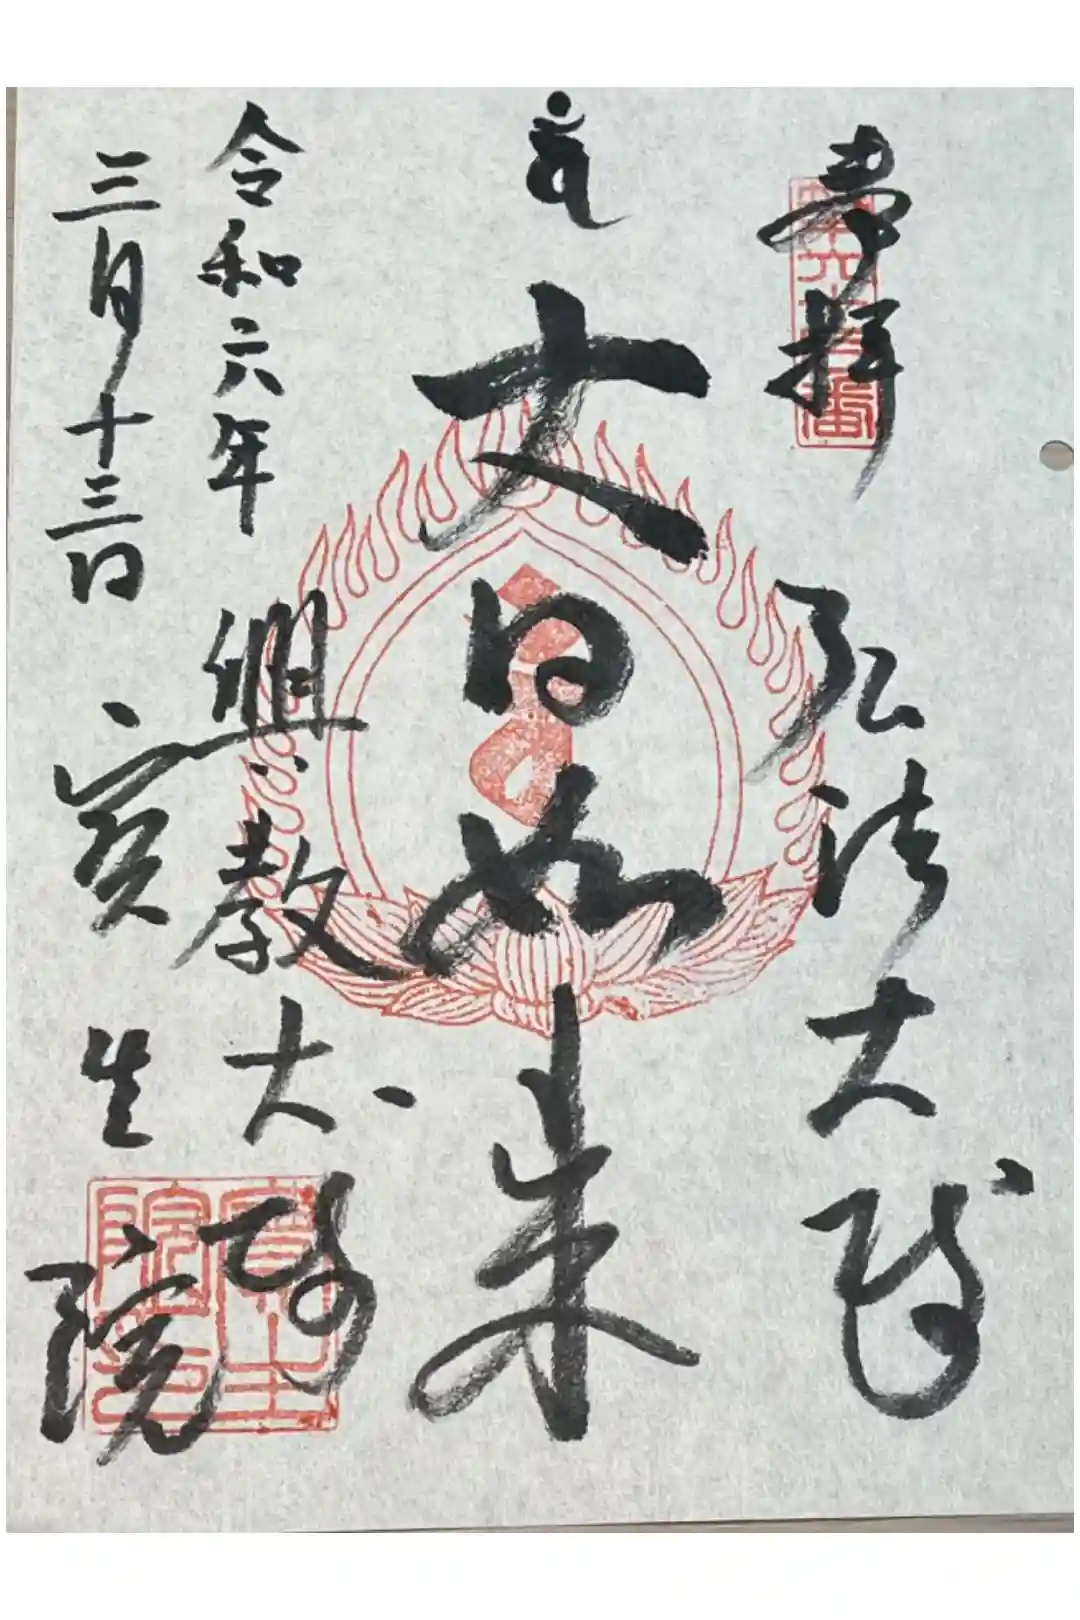 奉拝
弘法大師
大日如来
令和六年
興教大師
三月十三日
寶生院
寶生院印